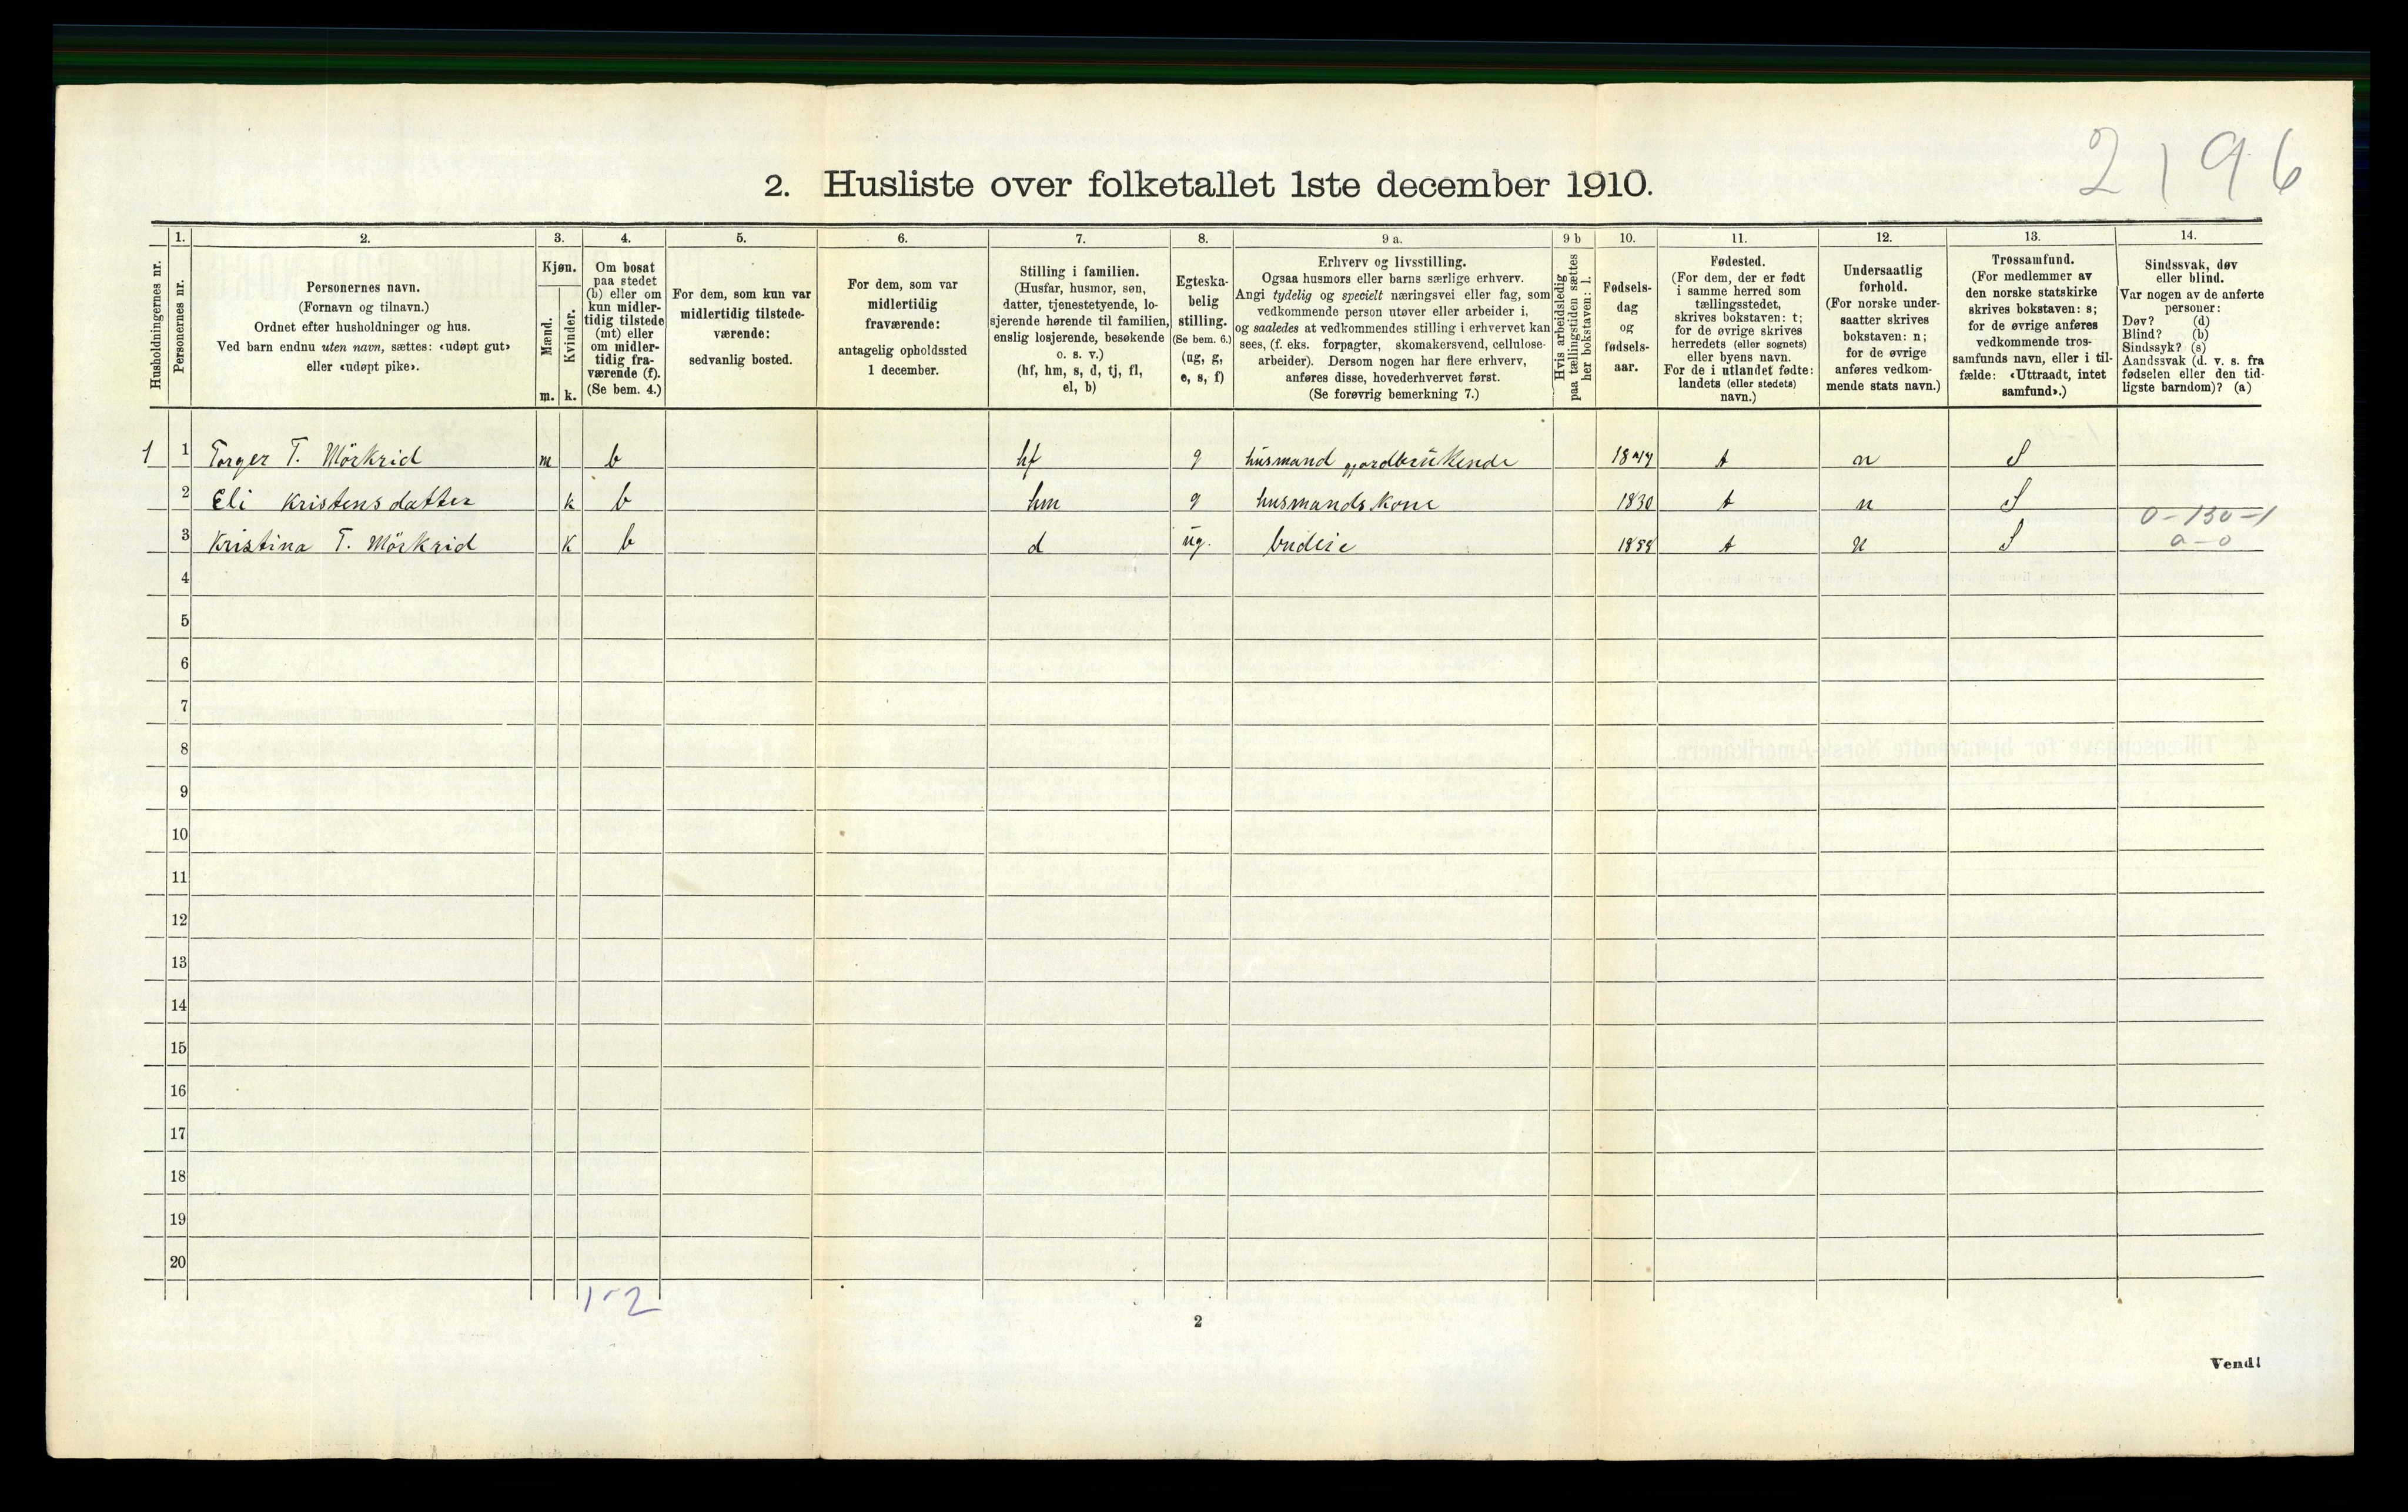 2196
2. Husliste over folketallet 1ste december 1910.
Husholdningernes nr.
1.
Personernes nr.
2.
Personernes navn.
(Fornavn og tilnavn.)
Ordnet efter husholdninger og hus.
Ved barn endnu uten navn, sættes: «udøpt gut»
eller «udøpt pike».
3.
Kjøn.
Mænd.
Kvinder.
m. k.
4.
Om bosat
paa stedet
(b) eller om
kun midler-
tidig tilstede
(mt) eller
om midler-
tidig fra-
værende (f).
(Se bem. 4.)
5.
For dem, som kun var
midlertidig tilstede-
værende:
sedvanlig bosted.
6.
For dem, som var
midlertidig
fraværende:
antagelig opholdssted
1 december.
7.
Stilling i familien.
(Husfar, husmor, søn,
datter, tjenestetyende, lo-
sjerende hørende til familien,
enslig losjerende, besøkende
o. s. v.)
(hf, hm, s, d, tj, fl,
el, b)
8.
Egteska-
belig
stilling.
(Se bem. 6.)
(ug, g,
e, s, f)
9 a.
Erhverv og livsstilling.
Ogsaa husmors eller barns særlige erhverv.
Angi tydelig og specielt næringsvei eller fag, som
vedkommende person utøver eller arbeider i,
og saaledes at vedkommendes stilling i erhvervet kan
sees, (f. eks. forpagter, skomakersvend, cellulose-
arbeider). Dersom nogen har flere erhverv,
anføres disse, hovederhvervet først.
(Se forøvrig bemerkning 7.)
9 b
Hvis arbeidsledig
paa tællingstiden sættes
her bokstaven: l.
10.
Fødsels-
dag
og
fødsels-
aar.
11.
Fødested.
(For dem, der er født
i samme herred som
tællingsstedet,
skrives bokstaven: t;
for de øvrige skrives
herredets (eller sognets)
eller byens navn.
For de i utlandet fødte:
landets (eller stedets)
navn.)
12.
Undersaatlig
forhold.
(For norske under-
saatter skrives
bokstaven: n;
for de øvrige
anføres vedkom-
mende stats navn.)
13.
Trossamfund.
(For medlemmer av
den norske statskirke
skrives bokstaven: s;
for de øvrige anføres
vedkommende tros-
samfunds navn, eller i til-
fælde: «Uttraadt, intet
samfund».)
14.
Sindssvak, døv
eller blind.
Var nogen av de anførte
personer:
Døv? (d)
Blind? (b)
Sindssyk? (s)
Aandssvak (d. v. s. fra
fødselen eller den tid-
ligste barndom)? (a)
1 1 Torger T. Mörkrid m b hf g husmand gjordbrukende t n S
2 Eli Kristensdatter k b hm g husmandskone 1830 t n S
0-130-1
3 Kristina T. Mörkrid k b d ug. budeie t n S a-0
4
5
6
7
8
9
10
11
12
13
14
15
16
17
18
19
20
1-2
2
Vend!